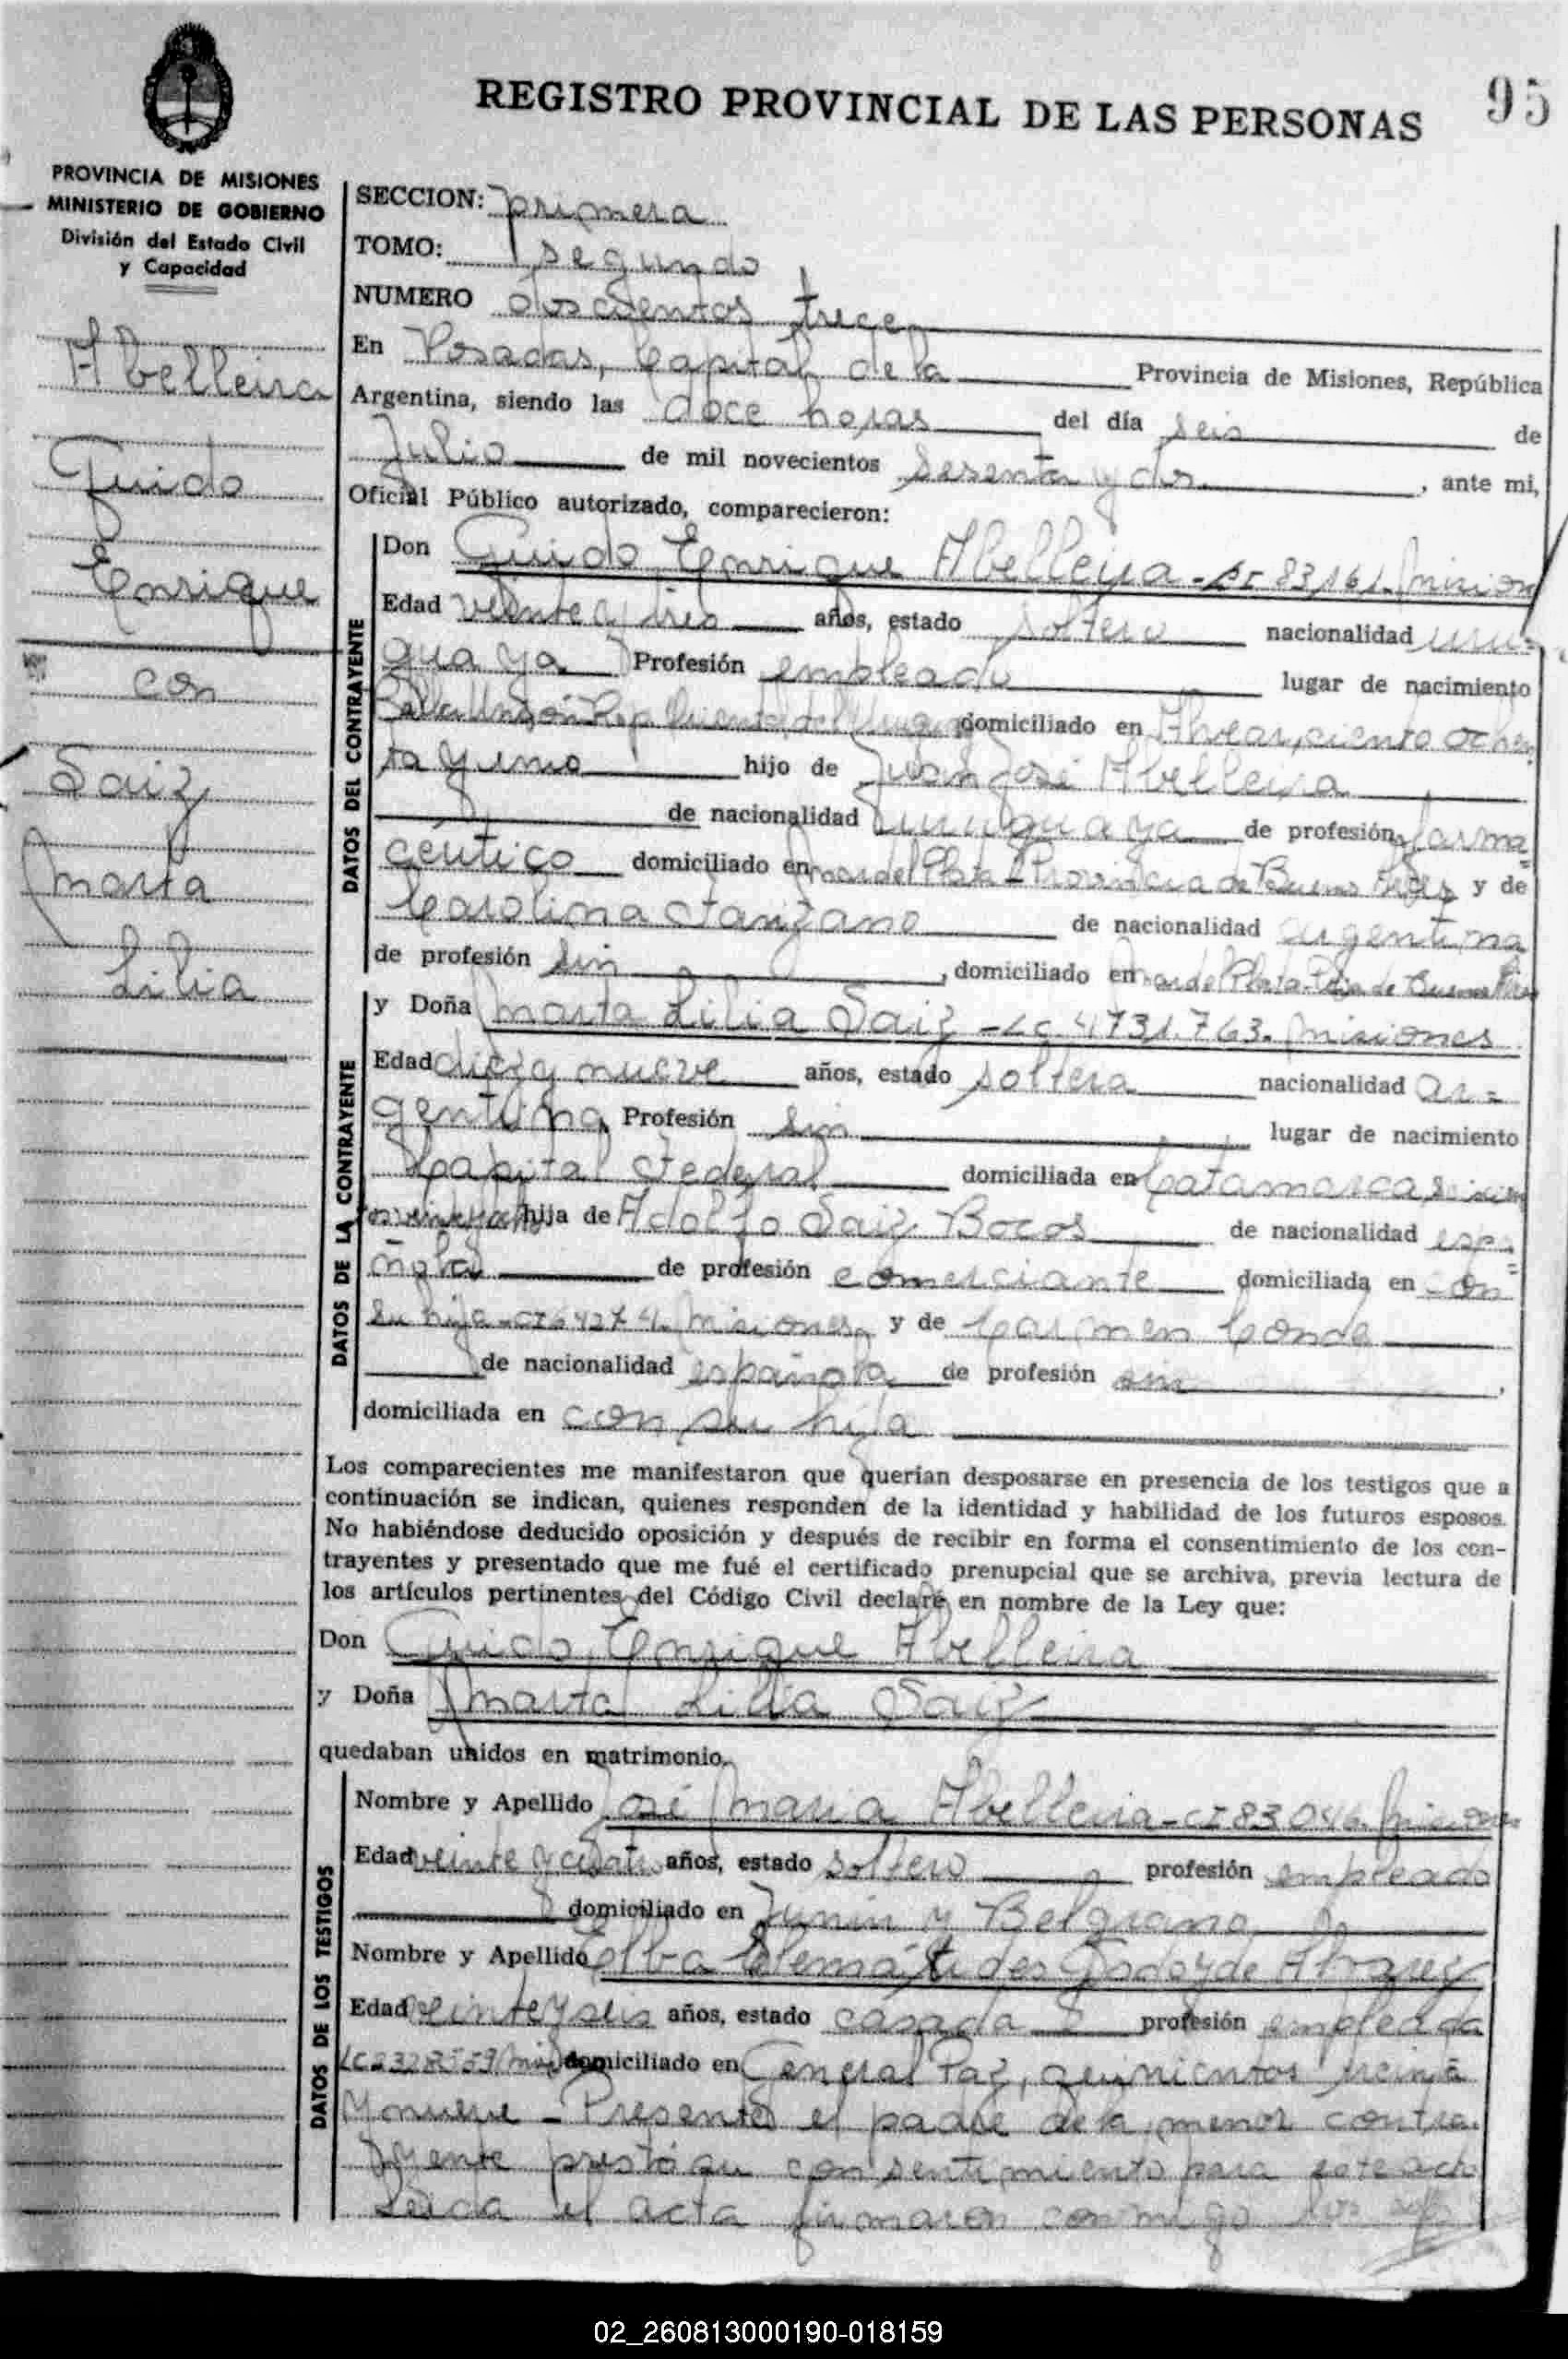 REGISTRO PROVINCIAL DE LAS PERSONAS
95
PROVINCIA DE MISIONES
MINISTERIO DE GOBIERNO
División del Estado Civil
y Capacidad
Abelleira
Guido
Enrique
con
Saiz
Marta
Lilia
SECCION: primera
TOMO: segundo
NUMERO doscientos trece
En Posadas, Capital de la Provincia de Misiones, República
Argentina, siendo las doce horas del día seis de
Julio de mil novecientos sesenta y dos, ante mi,
Oficial Público autorizado, comparecieron:
DATOS DEL CONTRAYENTE
Don Guido Enrique Abelleira - CI 83161. Mision
Edad veinte y tres años, estado soltero nacionalidad uru=
guaya Profesión empleado lugar de nacimiento
domiciliado en ciento ochen
ta y uno hijo de Juan José Abelleira
de nacionalidad uruguaya de profesión farma=
céutico domiciliado en Mar del Plata - Provincia de Buenos Aires y de
Carolina de nacionalidad argentina
de profesión sin, domiciliado en Mar del Plata - Pcia de Buenos Aires
DATOS DE LA CONTRAYENTE
y Doña Marta Lilia Saiz - LC 4731.763. Misiones
Edad diez y nueve años, estado soltera nacionalidad ar=
gentina Profesión sin lugar de nacimiento
Capital Federal domiciliada en Catamarca
hija de Adolfo Saiz Bocos de nacionalidad espa=
ñola de profesión comerciante domiciliada en con
su hija - CI 64274. Misiones y de Carmen Conde
de nacionalidad española de profesión sin,
domiciliada en con su hija
Los comparecientes me manifestaron que querían desposarse en presencia de los testigos que a
continuación se indican, quienes responden de la identidad y habilidad de los futuros esposos.
No habiéndose deducido oposición y después de recibir en forma el consentimiento de los con-
trayentes y presentado que me fué el certificado prenupcial que se archiva, previa lectura de
los artículos pertinentes del Código Civil declaré en nombre de la Ley que:
Don Guido Enrique Abelleira
y Doña Marta Lilia Saiz
quedaban unidos en matrimonio.
DATOS DE LOS TESTIGOS
Nombre y Apellido José Maria Abelleira - CI 83046. Misiones
Edad veinte y cuatro años, estado soltero profesión empleado
domiciliado en Junin y Belgrano
Nombre y Apellido Elba Godoy de Alvarez
Edad veinte y seis años, estado casada profesión empleada
domiciliado en General Paz, quinientos treinta
y nueve - Presente el padre de la menor contra
yente prestó su consentimiento para este acto
Leida el acta firmaron conmigo los
02_260813000190-018159